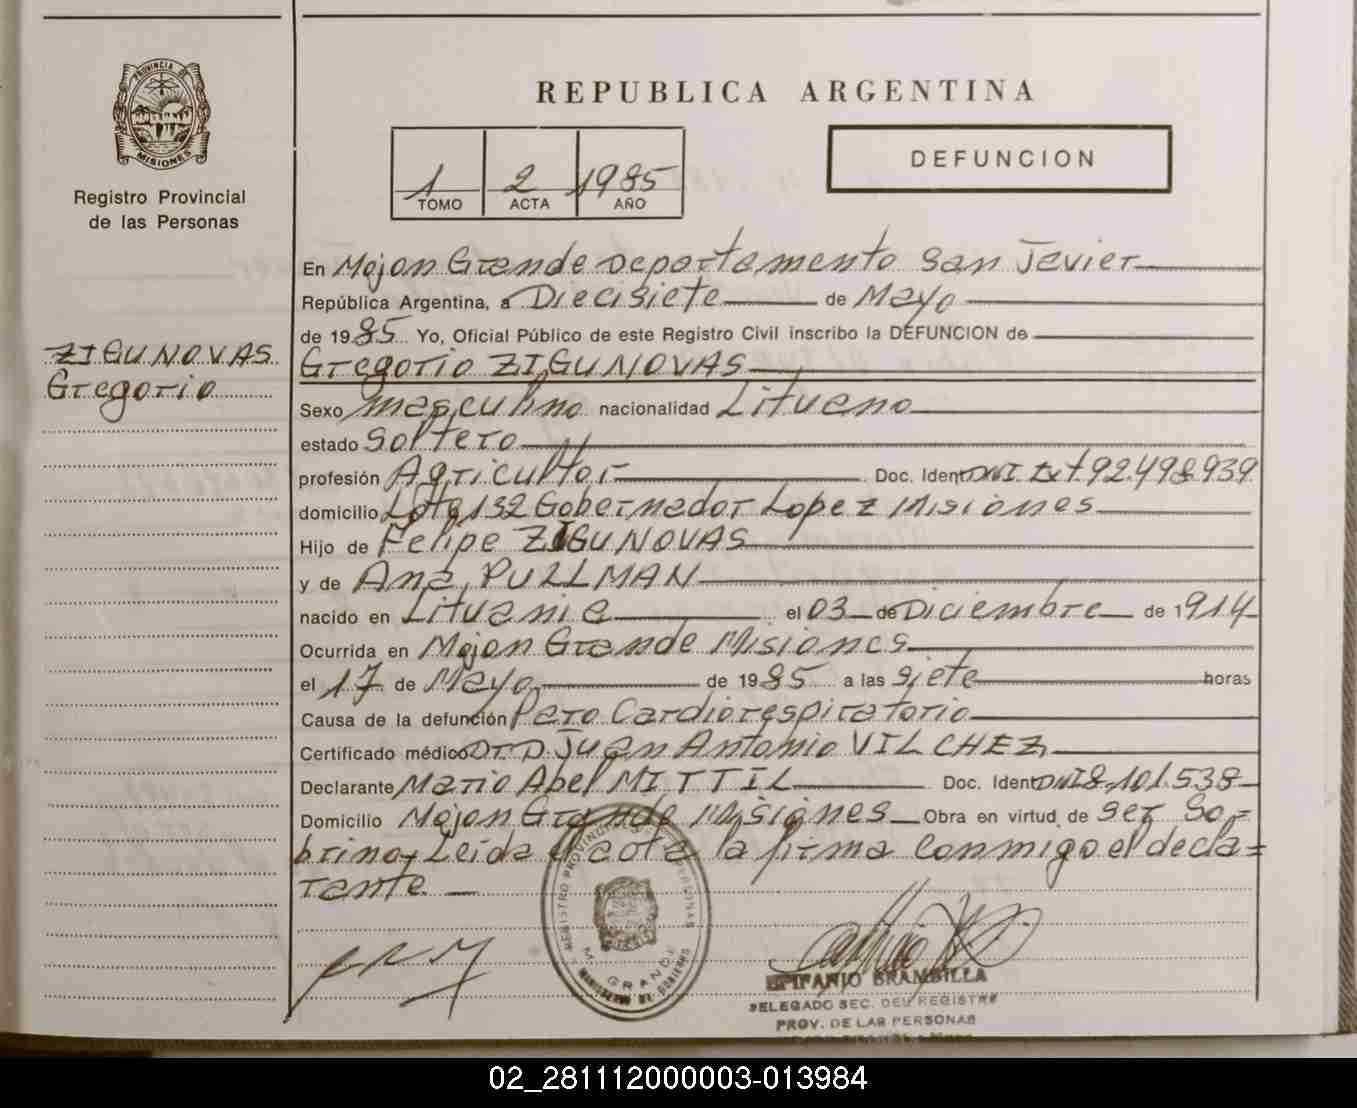 PROVINCIA DE
MISIONES
Registro Provincial
de las Personas
ZIGUNOVAS
Gregorio
REPUBLICA ARGENTINA
1 2 1985
TOMO ACTA AÑO
DEFUNCION
En Mojon Grande Departamento San Javier
República Argentina, a Diecisiete de Mayo
de 1985 Yo, Oficial Público de este Registro Civil inscribo la DEFUNCION de
Gregorio ZIGUNOVAS
Sexo masculino nacionalidad Lituano
estado Soltero
profesión Agricultor Doc. Ident. DNI. Ext 92.498.939
domicilio Lote 132 Gobernador Lopez Misiones
Hijo de Felipe ZIGUNOVAS
y de Ana PULLMAN
nacido en Lituania el 03 de Diciembre de 1914
Ocurrida en Mojon Grande Misiones
el 17 de Mayo de 1985 a las siete horas
Causa de la defunción Paro Cardiorespiratorio
Certificado médico Dr. D. Juan Antonio VILCHEZ
Declarante Mario Abel MITTIL Doc. Ident. DNI 8.101.538
Domicilio Mojon Grande Misiones Obra en virtud de ser So=
brino, Leida el acta la firma Conmigo el decla=
rante
REGISTRO PROVINCIAL DE LAS PERSONAS
M. GRANDE
MINISTERIO DE GOBIERNO
EPIFANIO BRAMBILLA
DELEGADO SEC. DEL REGISTRO
PROV. DE LAS PERSONAS
02_281112000003-013984